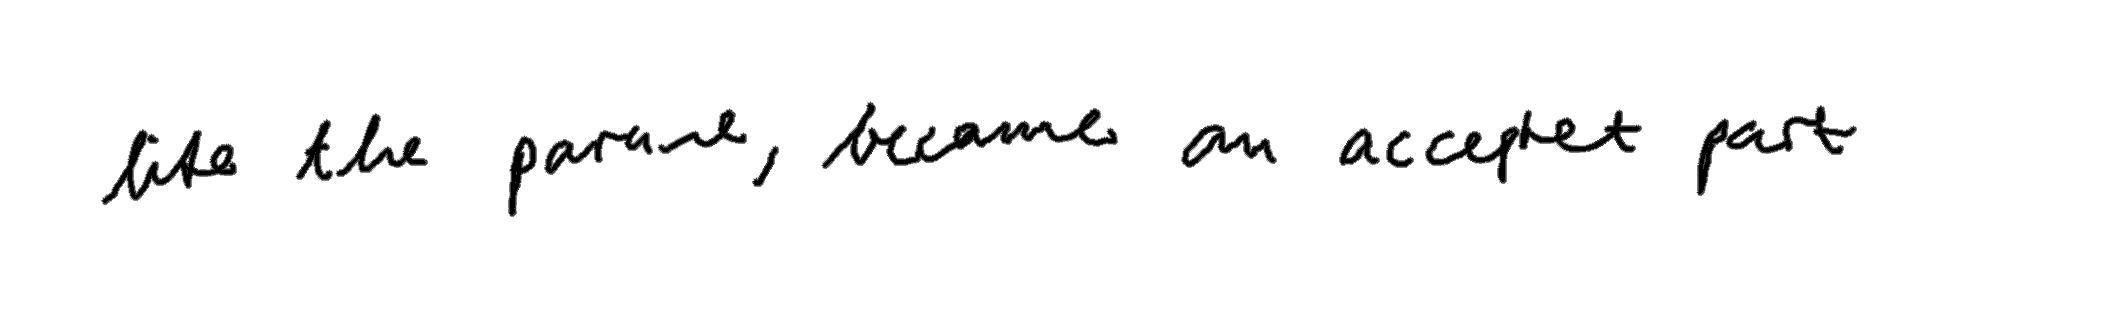 like the parure, became an accepted part